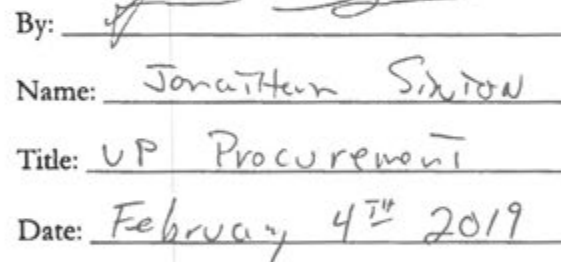 By:
Name: Jonaithan Sixton
Title: VP Procurement
Date: February 4TH 2019